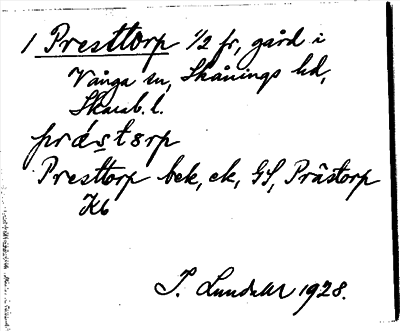 1 Presttorp 1/2 fr, gård i
Vånga sn, Skånings hd,
Skarab. l.
prástårp
Presttorp bek, ek, GS, Prästorp
Kb
S. Lundahl 1928.